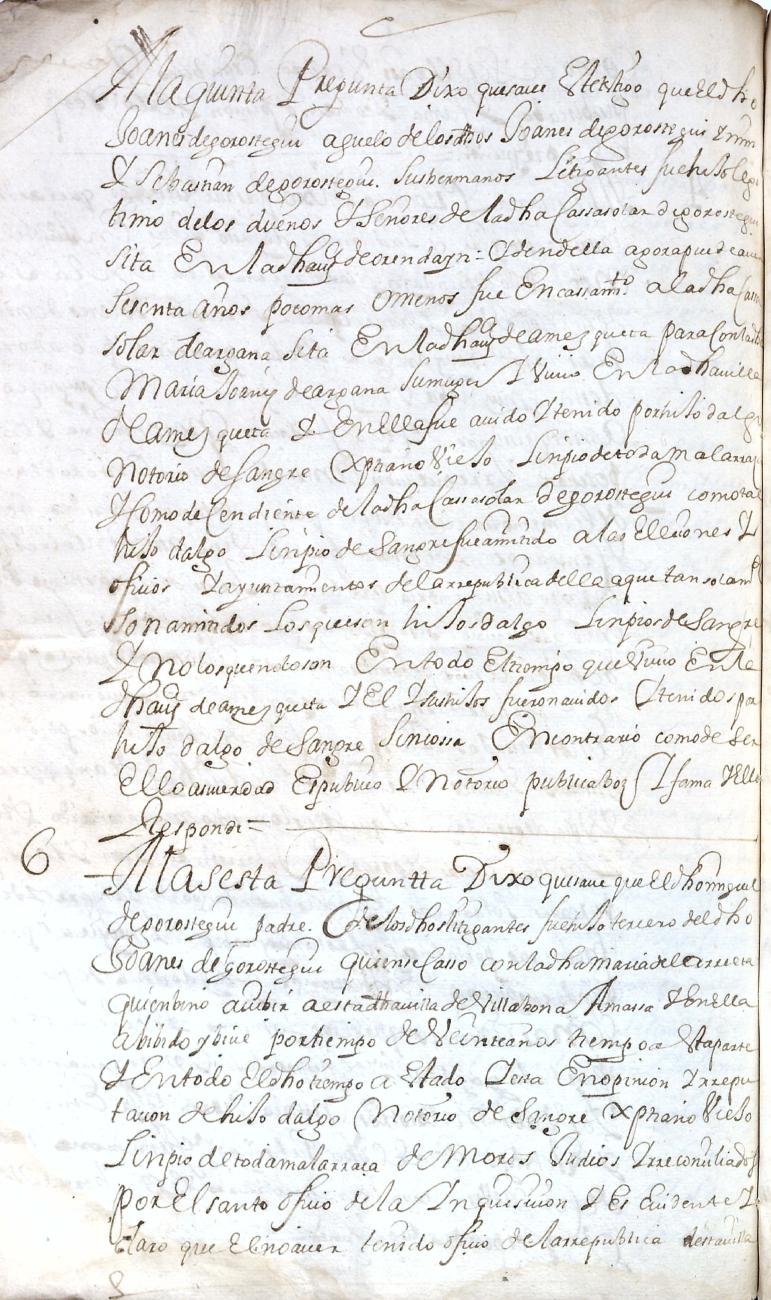 A la quinta Pregunta Dixo que saue El testigo que El dho
Joanes de gorostegui aguelo de los dhos Joanes de gorostegui
Y Sebastian de gorostegui sus hermanos Litigantes fue hijo legi
timo de los duenos Y Señores de la dha Cassa solar de gorostegui
sita En la dha villa de orendayn = Y den de ella agora puede auer
sesenta años poco mas o menos fue En cassamto a la dha Cassa
solar de argana sita En la dha villa de amezqueta para Con la dha
Maria de argana su muger Y Viuio En la dha villa
de amezqueta Y En Ella fue auido Y tenido por hijo dalgo
Notorio de Sangre Xptiano Viejo Linpio de toda mala rraça
Y Como decendiente de la dha Cassa solar de gorostegui como tal
hijo dalgo Linpio de Sangre fue amitido a las Elleciones Y
oficios Y ayuntamientos de la rrepublica della a que tan solamte
son amitidos Los que son hijos dalgo Linpios de Sangre
Y No los que no lo son En todo El tiempo que Viuio En la
dha villa de amezqueta Y El Y sus hijos fueron auidos Y tenidos por
hijos dalgo de Sangre sin cossa En contrario como de ser
Ello asi verdad Es publico Y Notorio publica boz Y fama Y Ello
Respondio =
6 A la sesta Preguntta Dixo que saue que El dho miguel
de gorostegui padre de los dhos litigantes fue hijo tercero del dho
Joanes de gorostegui quien se Casso con la dha maria de larreta
quien bino a uibir a esta dha villa de Villabona Amassa Y En Ella
a bibido y biue por tiempo de Veinte años tiempo a Esta parte
Y En todo El dho tiempo a Estado Y esta En opinion Y rrepu
tacion de hijo dalgo Notorio de Sangre Xptiano Viejo
Linpio de toda mala rraça de Moros Judios Y rreconciliados
por El santo oficio de la Inquisicion Y Es Euidente Y
claro que El no auer tenido oficio de la rrepublica desta villa